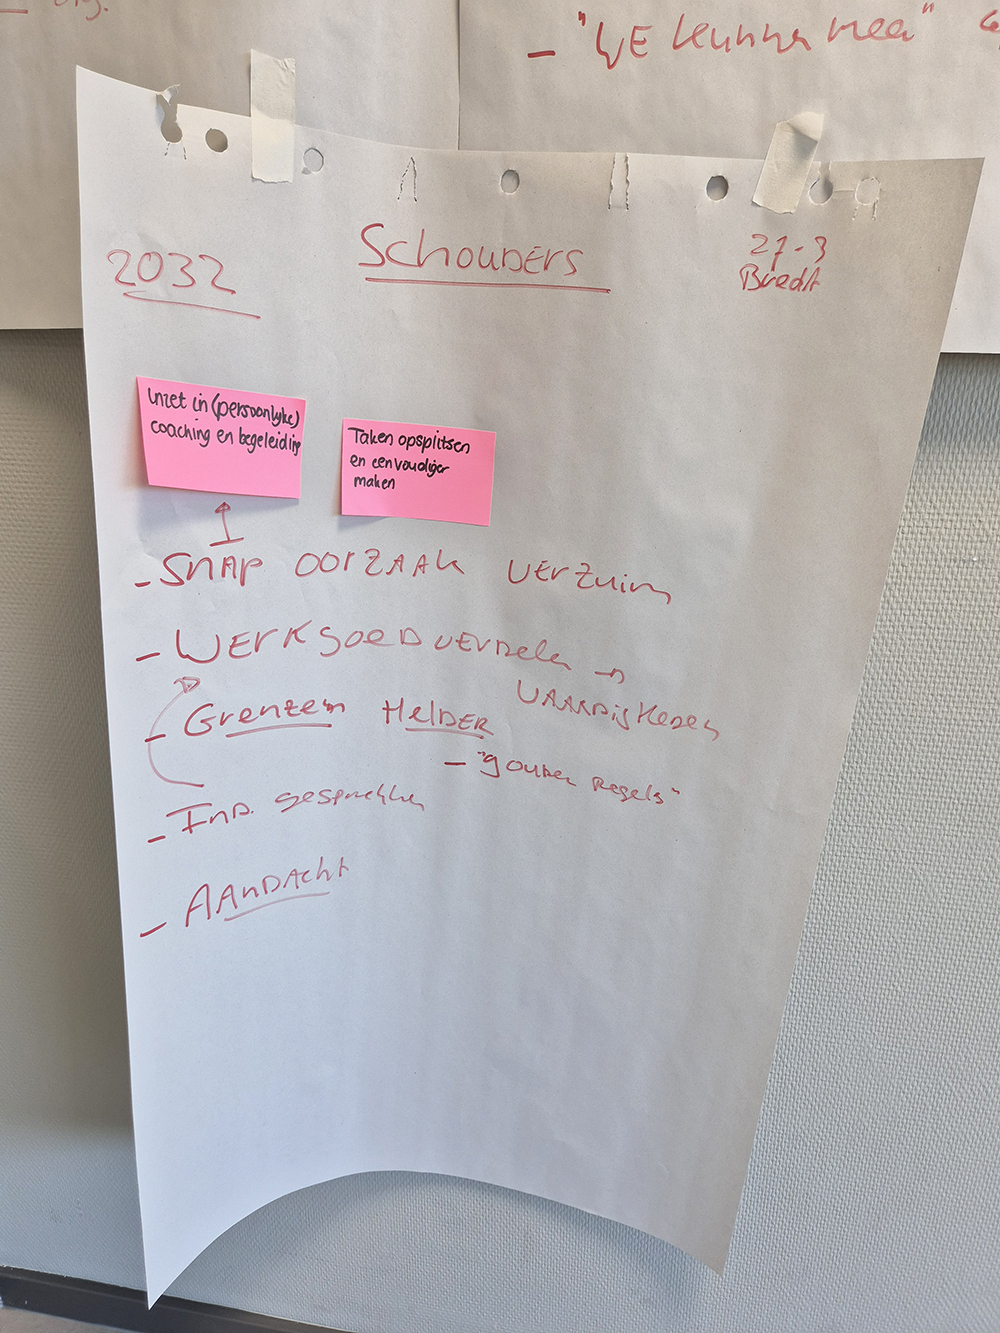 - "WE kunnen mee"
2032
Schouders
27-3
Bredt
inzet in (persoonlijke)
coaching en begeleiding
Taken opsplitsen
en eenvoudiger
maken
- Snap oorzaak verzuim
- Werk goed verdelen →
vaardigheden
- Grenzen Helder
- "gouden regels"
- Ind. gesprekken
- Aandacht